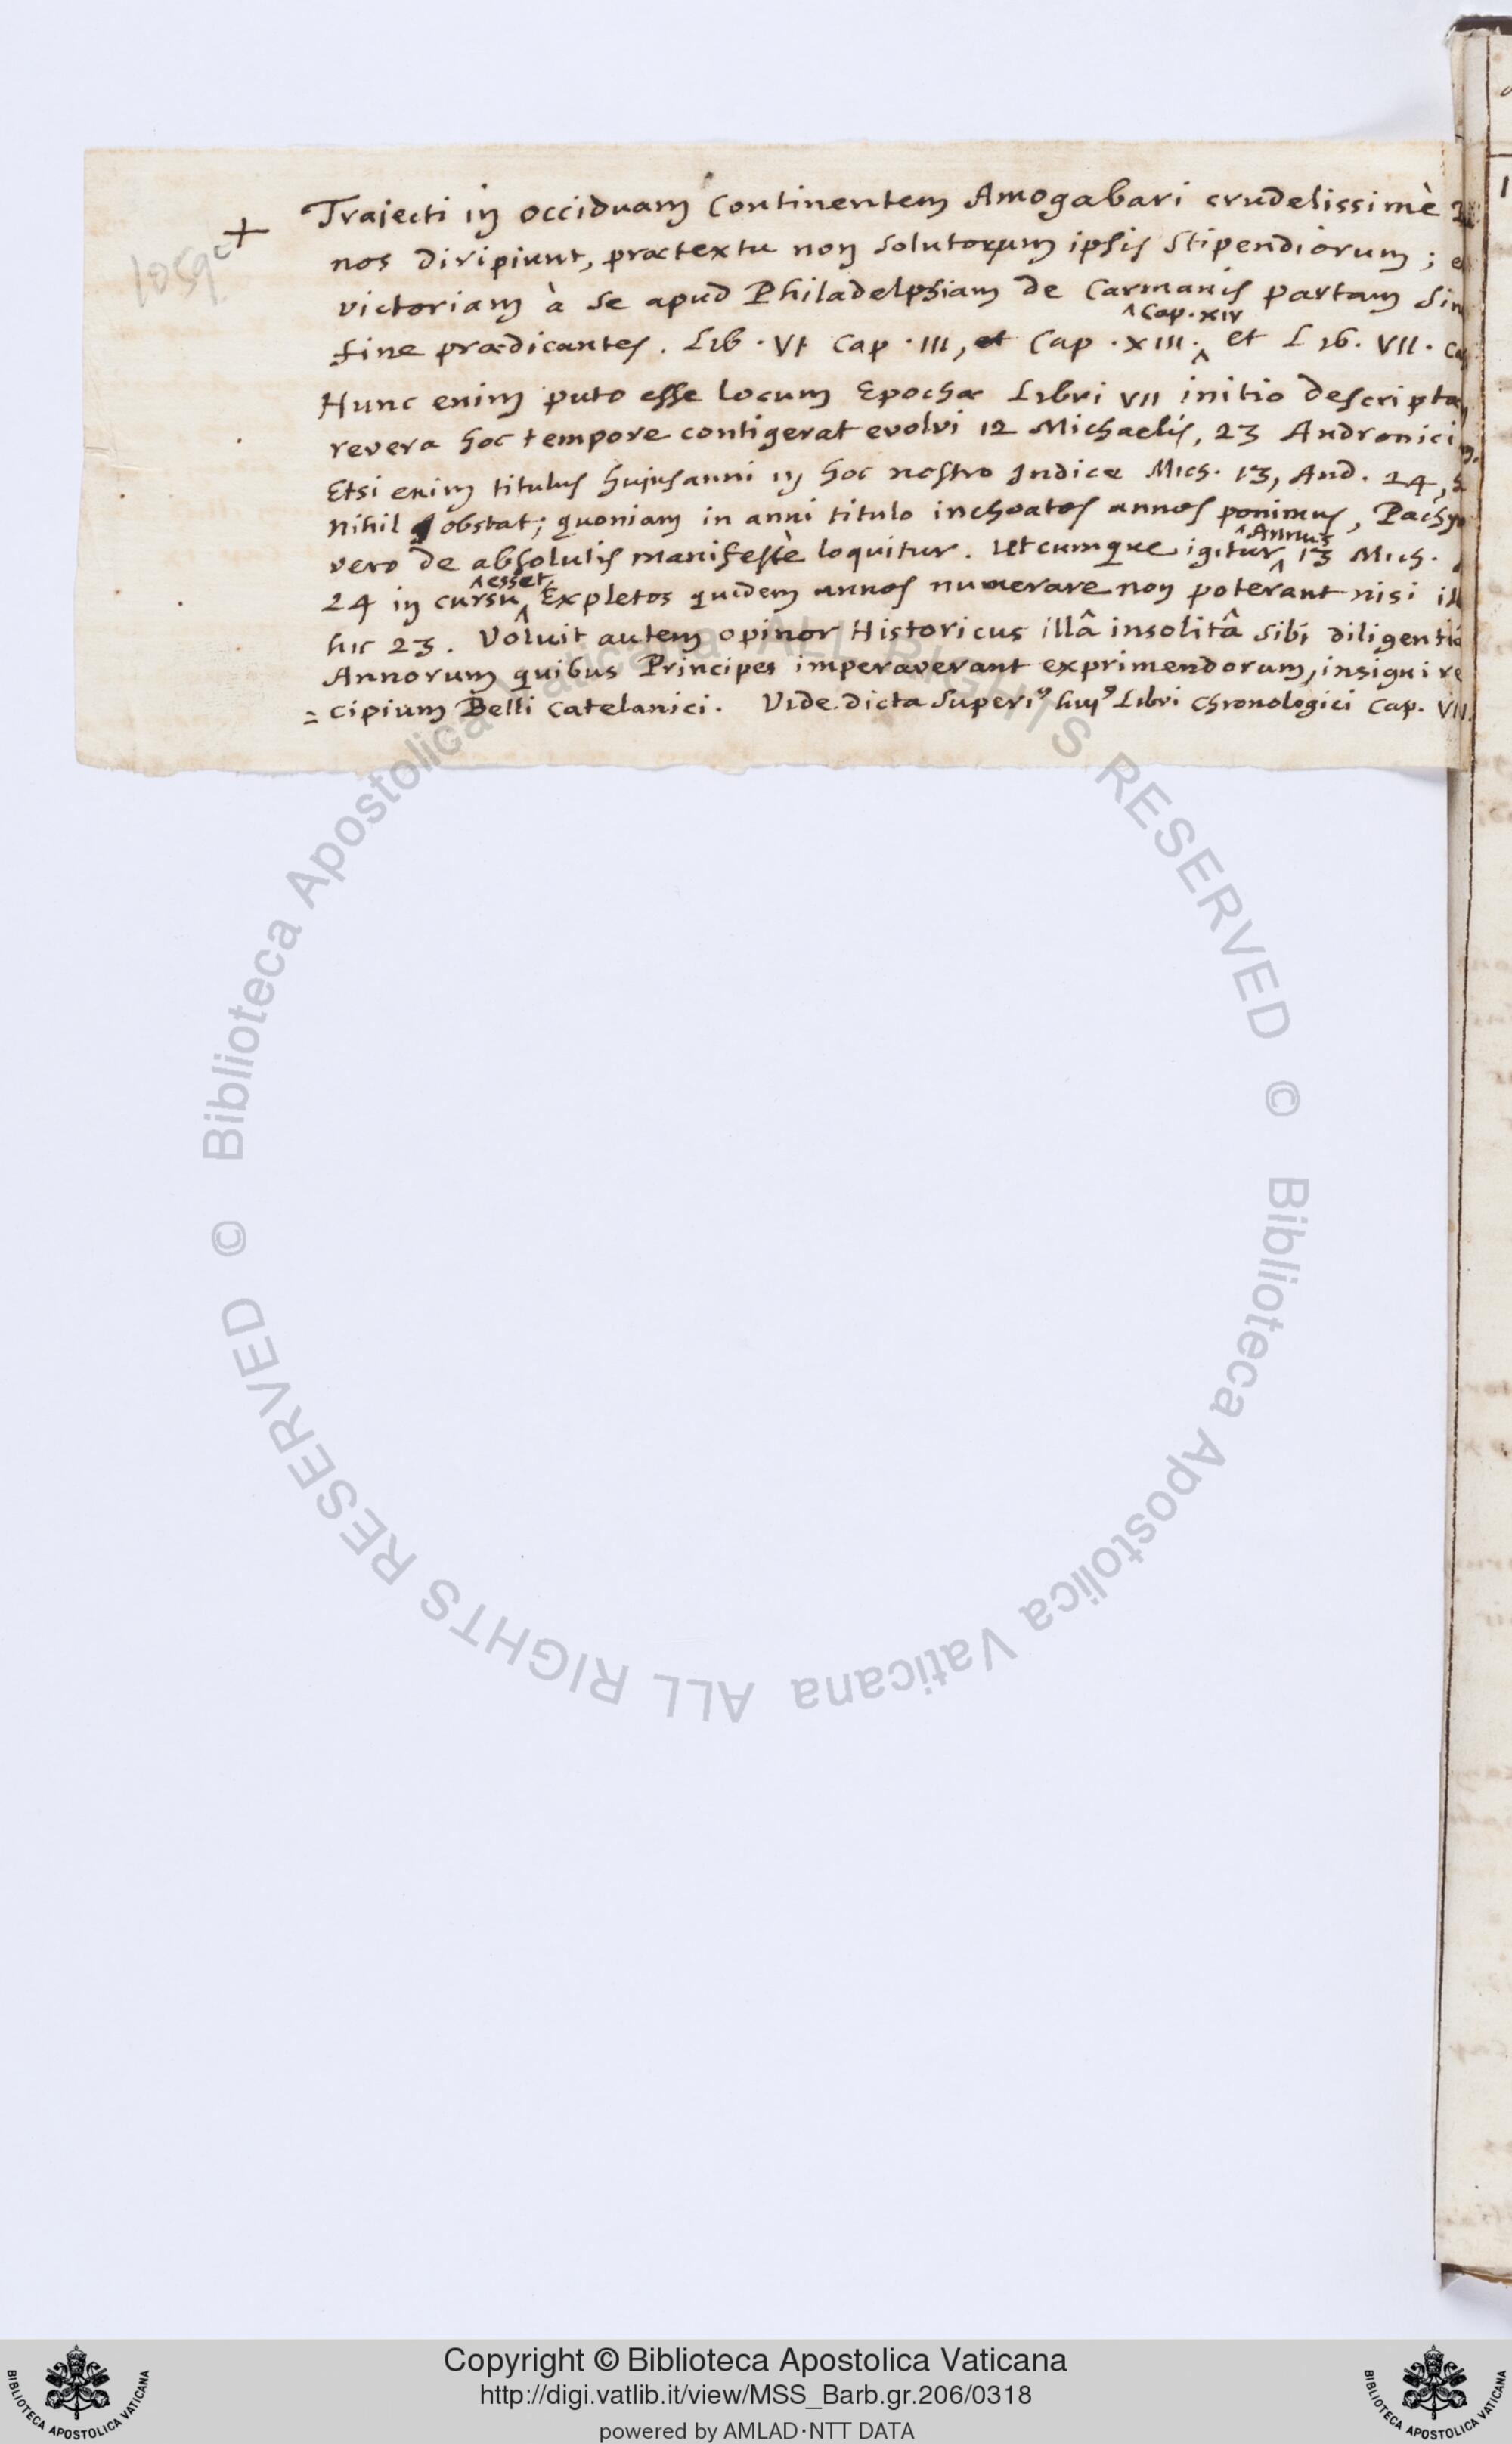 + Trajecti in occiduam Continentem Amogabari crudelissimè
nos diripiunt, prætextu non solutorum ipsis Stipendiorum;
victoriam à se apud Philadelphiam de Carmanis partam
^ Cap. XIV
fine prædicantes. Lib. VI Cap. III, et Cap. XIII. ^ et Lib. VII.
Hunc enim puto esse locum Epochæ Libri VII initio
revera hoc tempore contigerat evolvi 12 Michaelis, 23 Andronici
Etsi enim titulus hujus anni in hoc nostro Indice Mich. 13, And. 24,
Nihil obstat; quoniam in anni titulo inchoatos annos ponimus,
^ Annus
vero de absolutis manifestè loquitur. Utcumque igitur ^ 13 Mich.
^ esset
24 in cursu ^ Expletos quidem annos numerare non poterant nisi
hic 23. Voluit autem opinor Historicus illâ insolitâ sibi
Annorum quibus Principes imperaverant exprimendorum, insigniri
= cipium Belli Catelanici. Vide dicta Superi⁹ huj⁹ Libri Chronologici Cap. VII.
© Biblioteca Apostolica Vaticana ALL RIGHTS RESERVED
© Biblioteca Apostolica Vaticana ALL RIGHTS RESERVED
Copyright © Biblioteca Apostolica Vaticana
http://digi.vatlib.it/view/MSS_Barb.gr.206/0318
powered by AMLAD·NTT DATA
BIBLIOTECA APOSTOLICA VATICANA
BIBLIOTECA APOSTOLICA VATICANA